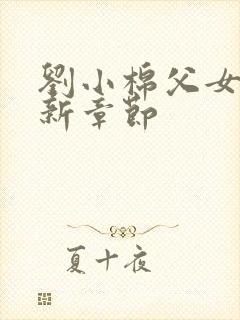 劉小棉父女
新章節
夏十夜